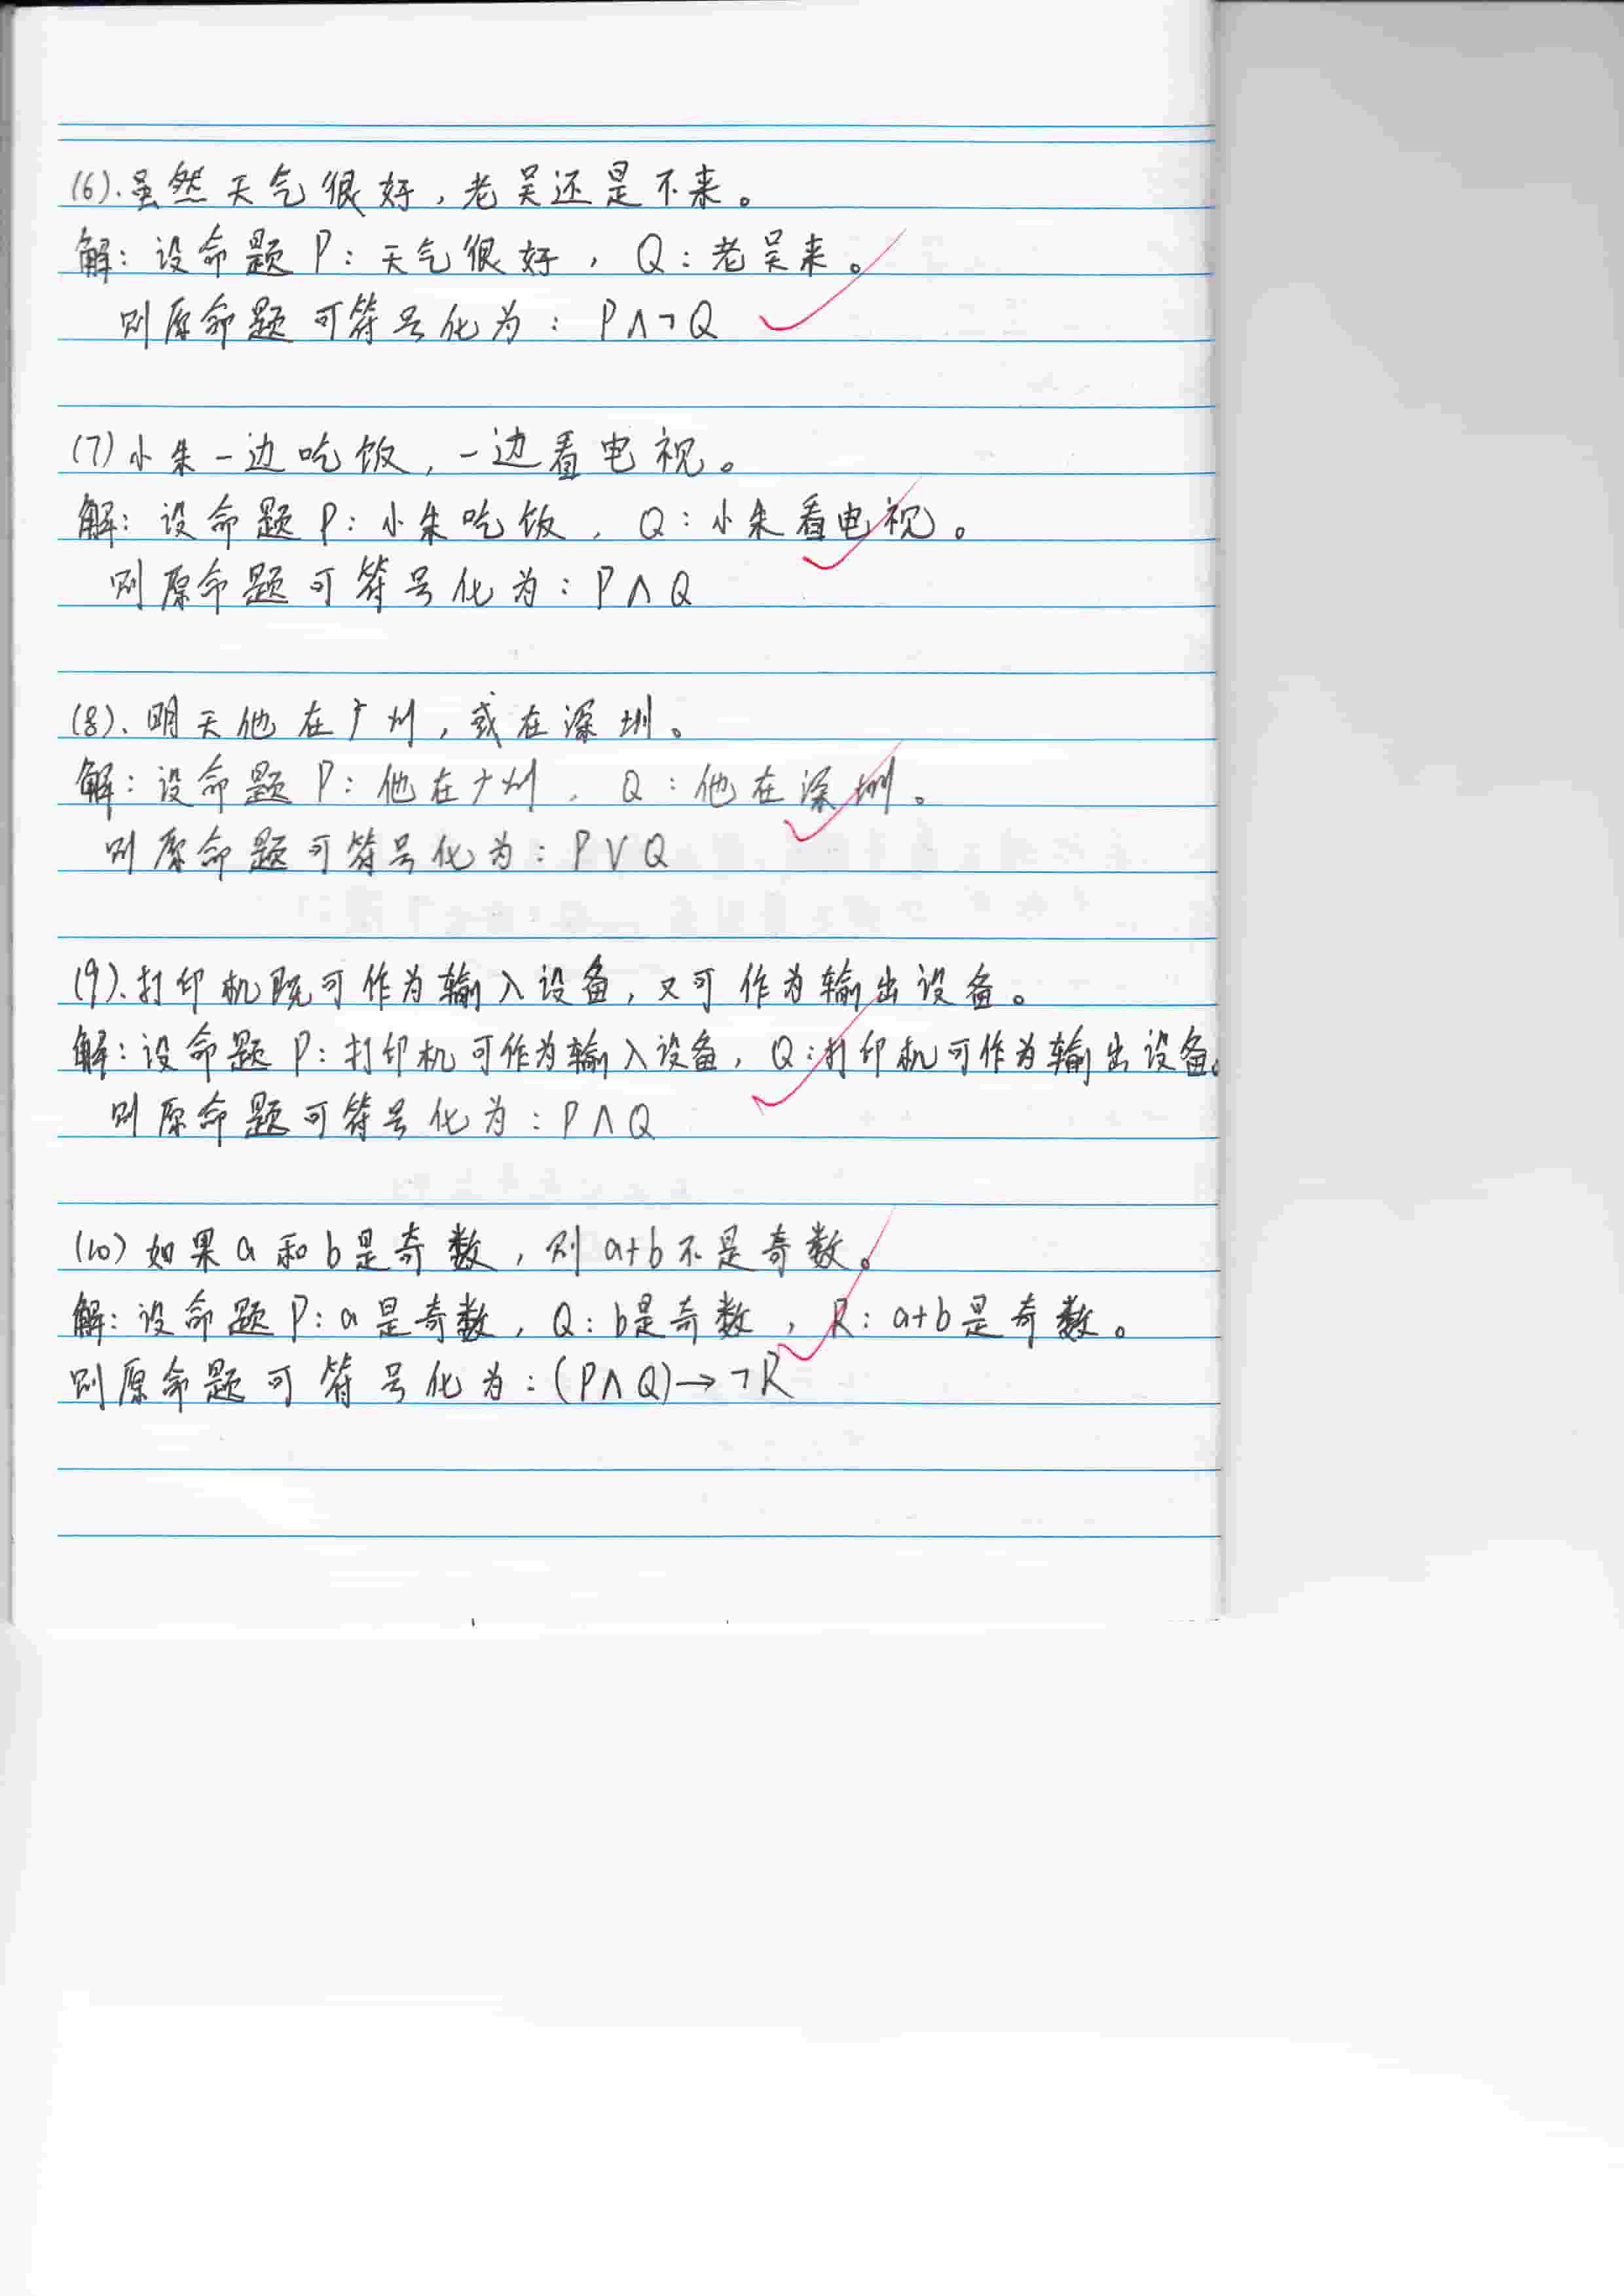 (6).虽然天气很好,老吴还是不来。
解:设命题P:天气很好,Q:老吴来。
则原命题可符号化为:P∧¬Q
(7)小朱一边吃饭,一边看电视。
解:设命题P:小朱吃饭,Q:小朱看电视。
则原命题可符号化为:P∧Q
(8)、明天他在广州,或在深圳。
解:设命题P:他在广州,Q:他在深圳。
则原命题可符号化为:P∨Q
(9)、打印机既可作为输入设备,又可作为输出设备。
解:设命题P:打印机可作为输入设备,Q:打印机可作为输出设备。
则原命题可符号化为:P∧Q
(10)如果a和b是奇数,则a+b不是奇数。
解:设命题P:a是奇数,Q:b是奇数,R:a+b是奇数。
则原命题可符号化为:(P∧Q)→¬R